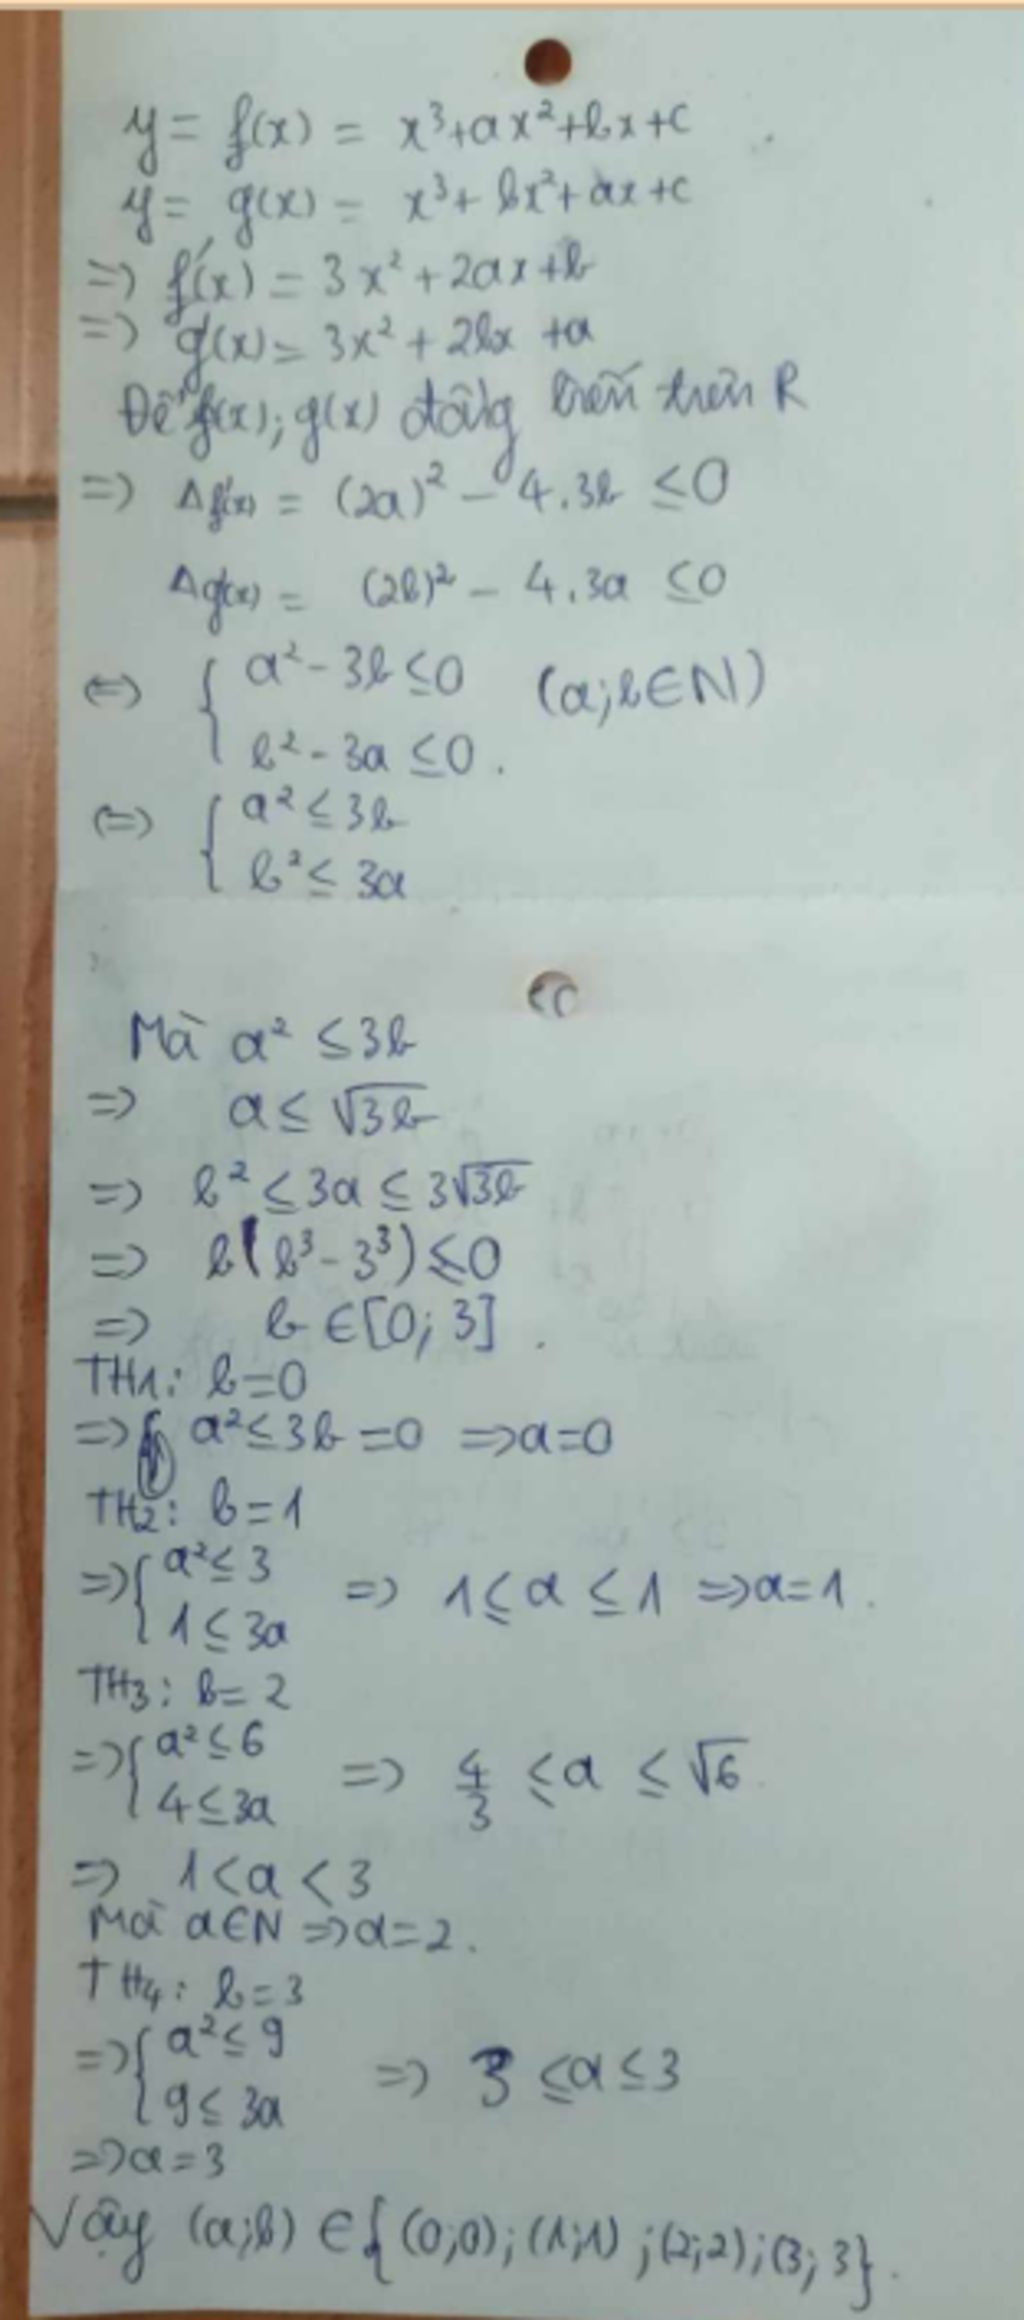 y = f(x) = x³+ax²+bx+c
y = g(x) = x³+bx²+ax+c
=> f'(x) = 3x²+2ax+b
=> g'(x) = 3x²+2bx+a
Để f(x); g(x) đồng biến trên R
=> Δf'(x) = (2a)² - 4.3b ≤0
Δg'(x) = (2b)² - 4.3a ≤0
<=> { a²-3b ≤0 (a;b∈N)
b²-3a ≤0.
<=> { a² ≤ 3b
b² ≤ 3a
Mà a² ≤3b
=> a ≤ √3b
=> b² ≤3a ≤ 3√3b
=> b(b³-3³) ≤0
=> b ∈[0; 3].
TH1: b=0
=> a²≤3b=0 =>a=0
TH2: b=1
=>{ a²≤3 => 1≤a≤1 =>a=1.
1≤3a
TH3: b=2
=>{ a²≤6 => 4/3 ≤a ≤ √6.
4≤3a
=> 1<a<3
Mà a∈N =>a=2.
TH4: b=3
=>{ a²≤9 => 3 ≤a≤3
9≤3a
=>a=3
Vậy (a;b) ∈{(0;0);(1;1);(2;2);(3;3}.